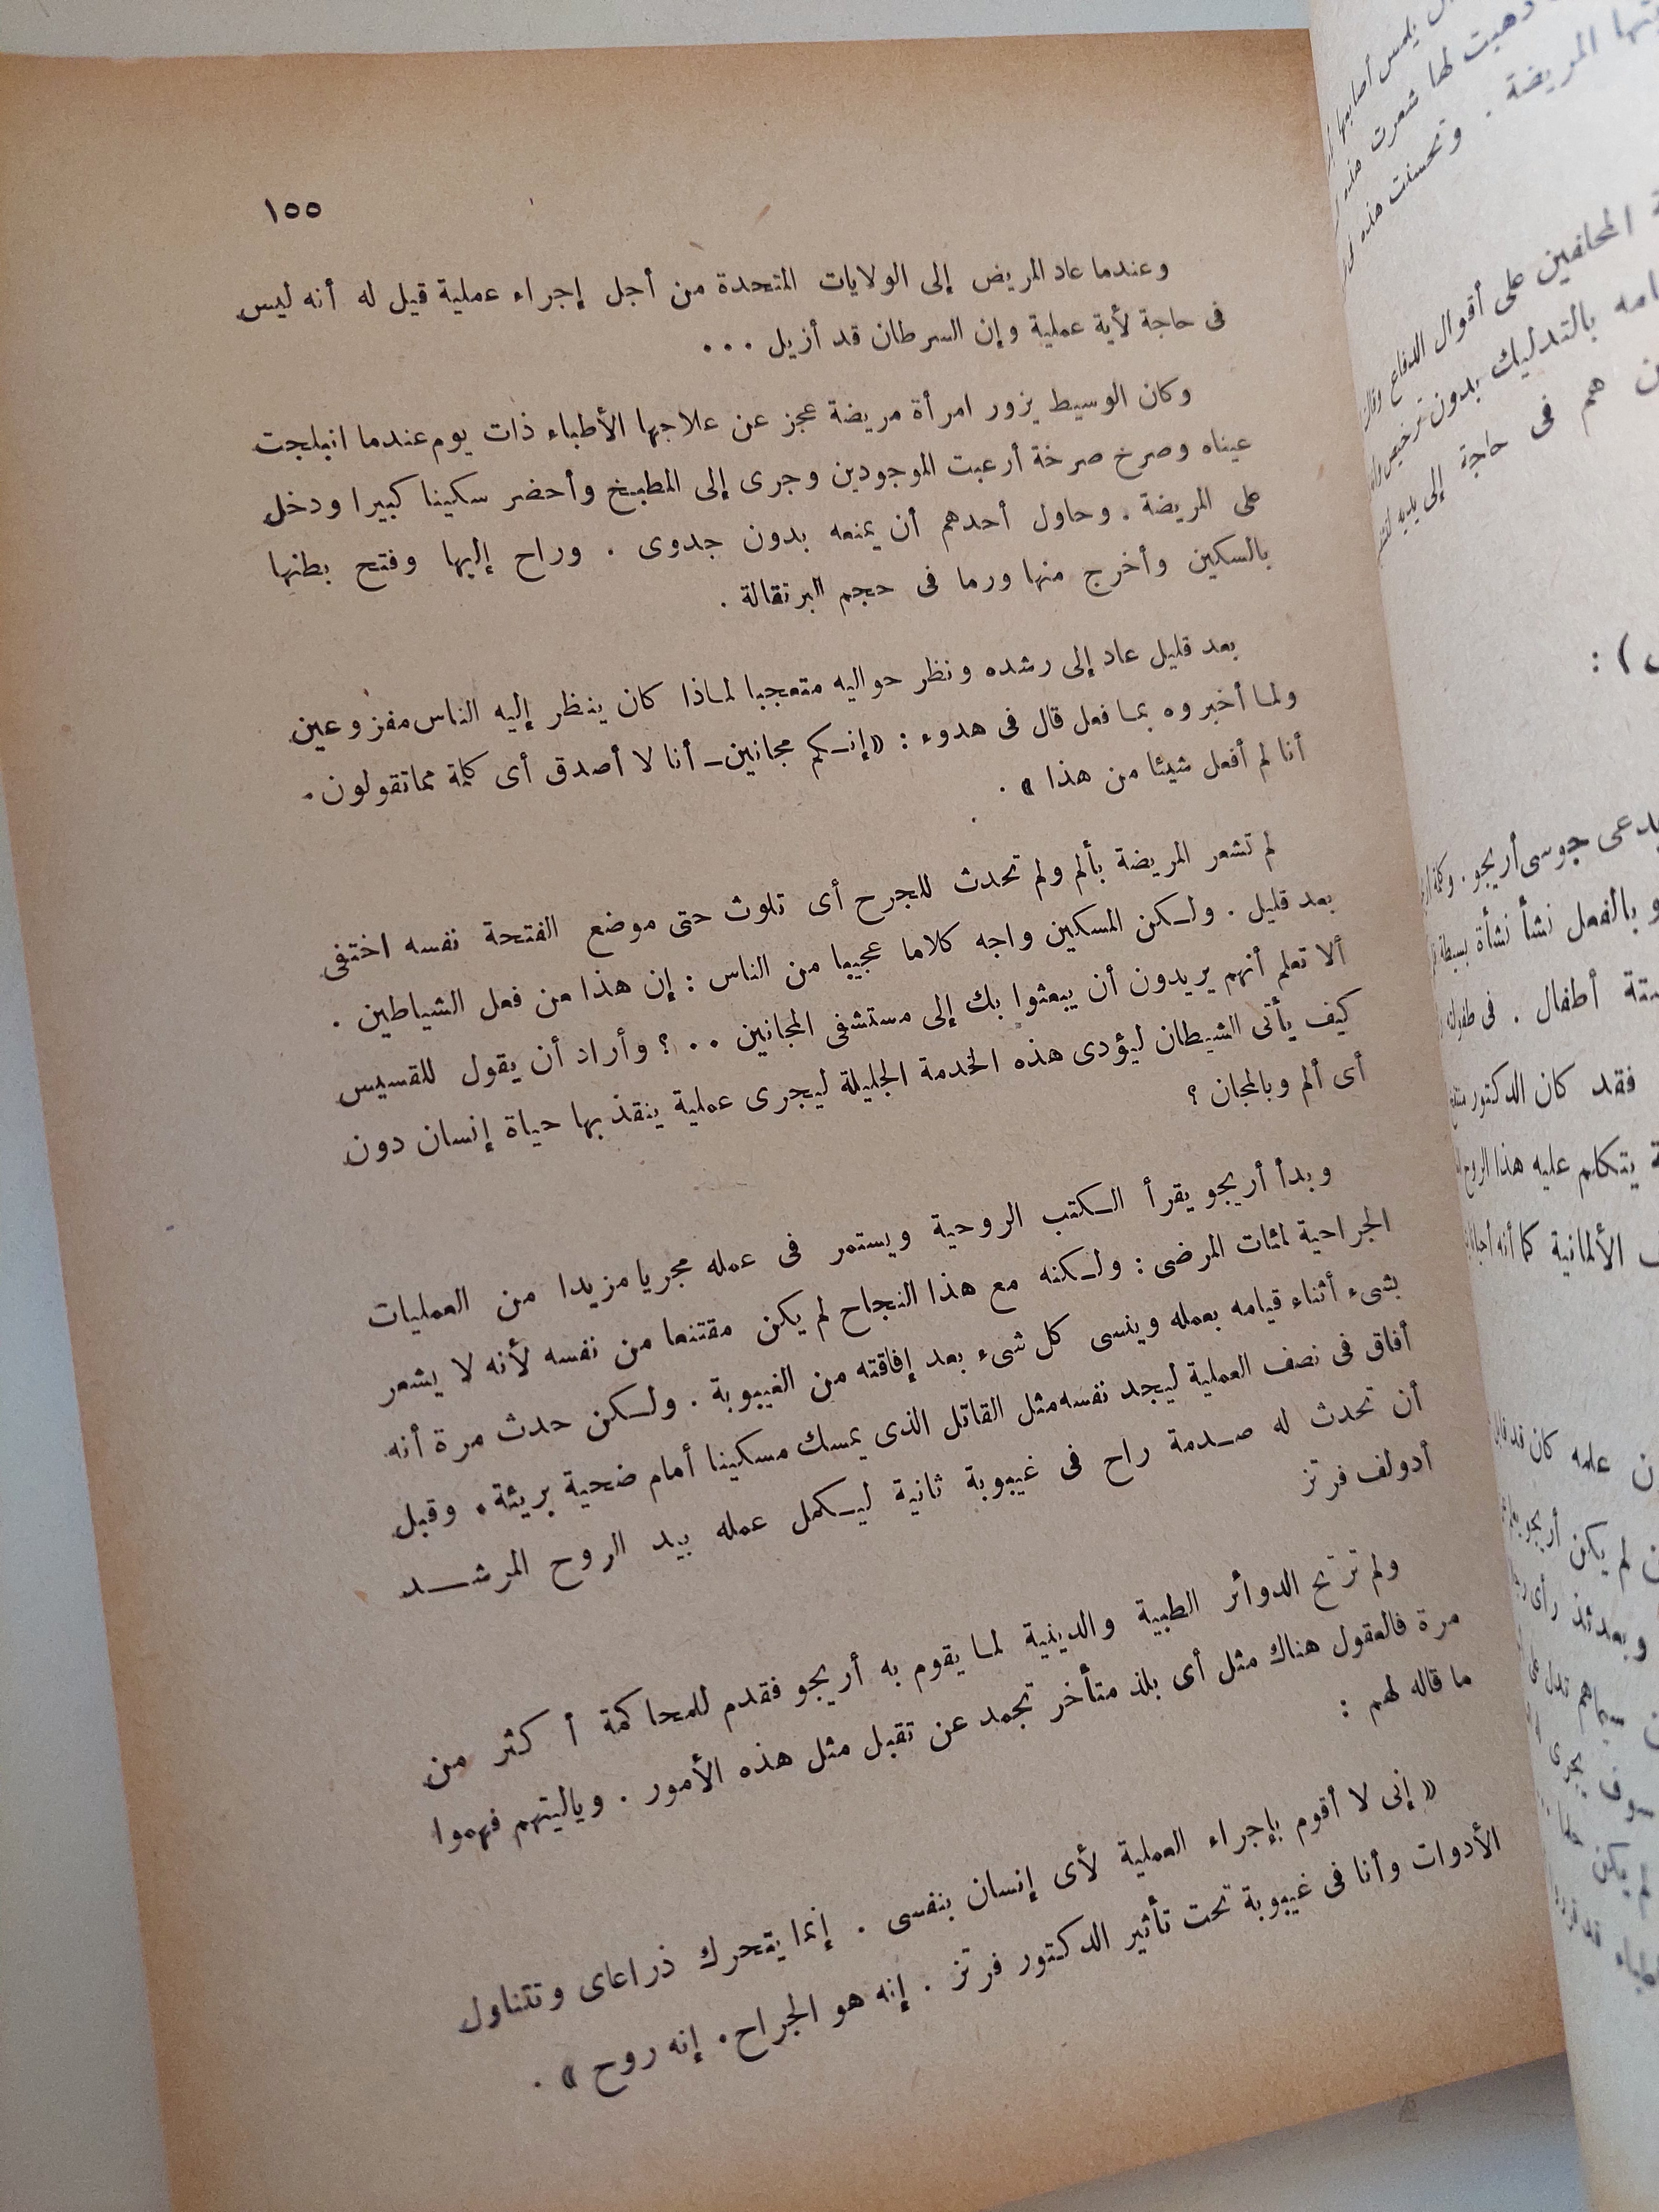 ١٥٥
وعندما عاد المريض إلى الولايات المتحدة من أجل إجراء عملية قيل له أنه ليس
فى حاجة لأية عملية وإن السرطان قد أزيل ...
وكان الوسيط يزور امرأة مريضة عجز عن علاجها الأطباء ذات يوم عندما انبلجت
عيناه وصرخ صرخة أرعبت الموجودين وجرى إلى المطبخ وأحضر سكينا كبيرا ودخل
على المريضة . وحاول أحدهم أن يمنعه بدون جدوى . وراح إليها وفتح بطنها
بالسكين وأخرج منها ورما فى حجم البرتقالة .
بعد قليل عاد إلى رشده ونظر حواليه متعجبا لماذا كان ينظر إليه الناس مفزوعين
ولما أخبروه بما فعل قال فى هدوء : « إنكم مجانين ـ أنا لا أصدق أى كلمة مماتقولون .
أنا لم أفعل شيئا من هذا » .
لم تشعر المريضة بألم ولم تحدث للجرح أى تلوث حتى موضع الفتحة نفسه اختفى
بعد قليل . ولكن المسكين واجه كلاما عجيبا من الناس : إن هذا من فعل الشياطين .
ألا تعلم أنهم يريدون أن يبعثوا بك إلى مستشفى المجانين .. ؟ وأراد أن يقول للقسيس
كيف يأتى الشيطان ليؤدى هذه الخدمة الجليلة ليجرى عملية ينقذ بها حياة إنسان دون
أى ألم وبالمجان ؟
وبدأ أريجو يقرأ الكتب الروحية ويستمر فى عمله مجريا مزيدا من العمليات
الجراحية لمئات المرضى : ولكنه مع هذا النجاح لم يكن مقتنعا من نفسه لأنه لا يشعر
بشىء أثناء قيامه بعمله وينسى كل شىء بعد إفاقته من الغيبوبة . ولكن حدث مرة أنه
أفاق فى نصف العملية ليجد نفسه مثل القاتل الذى يمسك مسكينا أمام ضحية بريئة . وقبل
أن تحدث له صدمة راح فى غيبوبة ثانية ليكمل عمله بيد الروح المرشد
أدولف فرتز
ولم ترتح الدوائر الطبية والدينية لما يقوم به أريجو فقدم للمحاكمة أكثر من
مرة فالعقول هناك مثل أى بلد متأخر تجمد عن تقبل مثل هذه الأمور . وياليتهم فهموا
ما قاله لهم :
« إنى لا أقوم بإجراء العملية لأى إنسان بنفسى . إنما يتحرك ذراعاى وتتناول
الأدوات وأنا فى غيبوبة تحت تأثير الدكتور فرتز . إنه هو الجراح . إنه روح » .
يلمس أصابعها
ذهبت لها شعرت هذه
المريضة . وتحسنت هذه
المحلفين على أقوال الدفاع
بالتدليك بدون ترخيص
هم فى حاجة إلى يديه
) :
يدعى جوسى أريجو .
بالفعل نشأ نشأة بسيطة
ستة أطفال . فى
فقد كان الدكتور
يتكلم عليه هذا الروح
الألمانية كما أنه
علمه كان قد
لم يكن أريجو
وبعدئذ رأى
تدل على
سوف يجرى
لم يكن